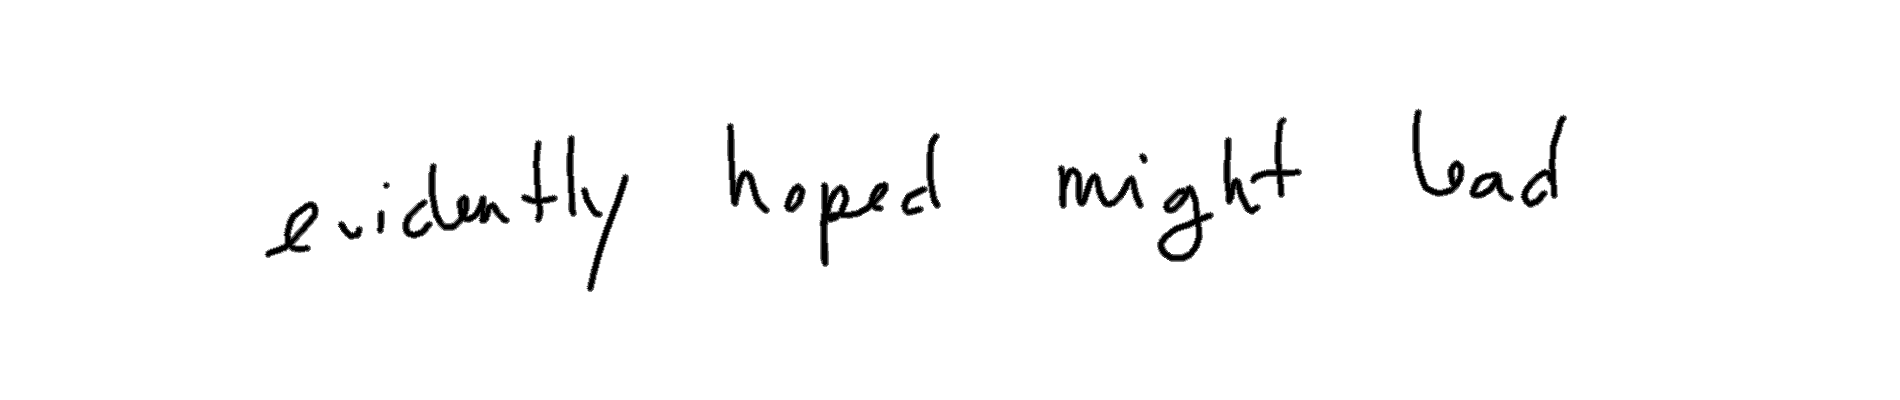 evidently hoped might lead